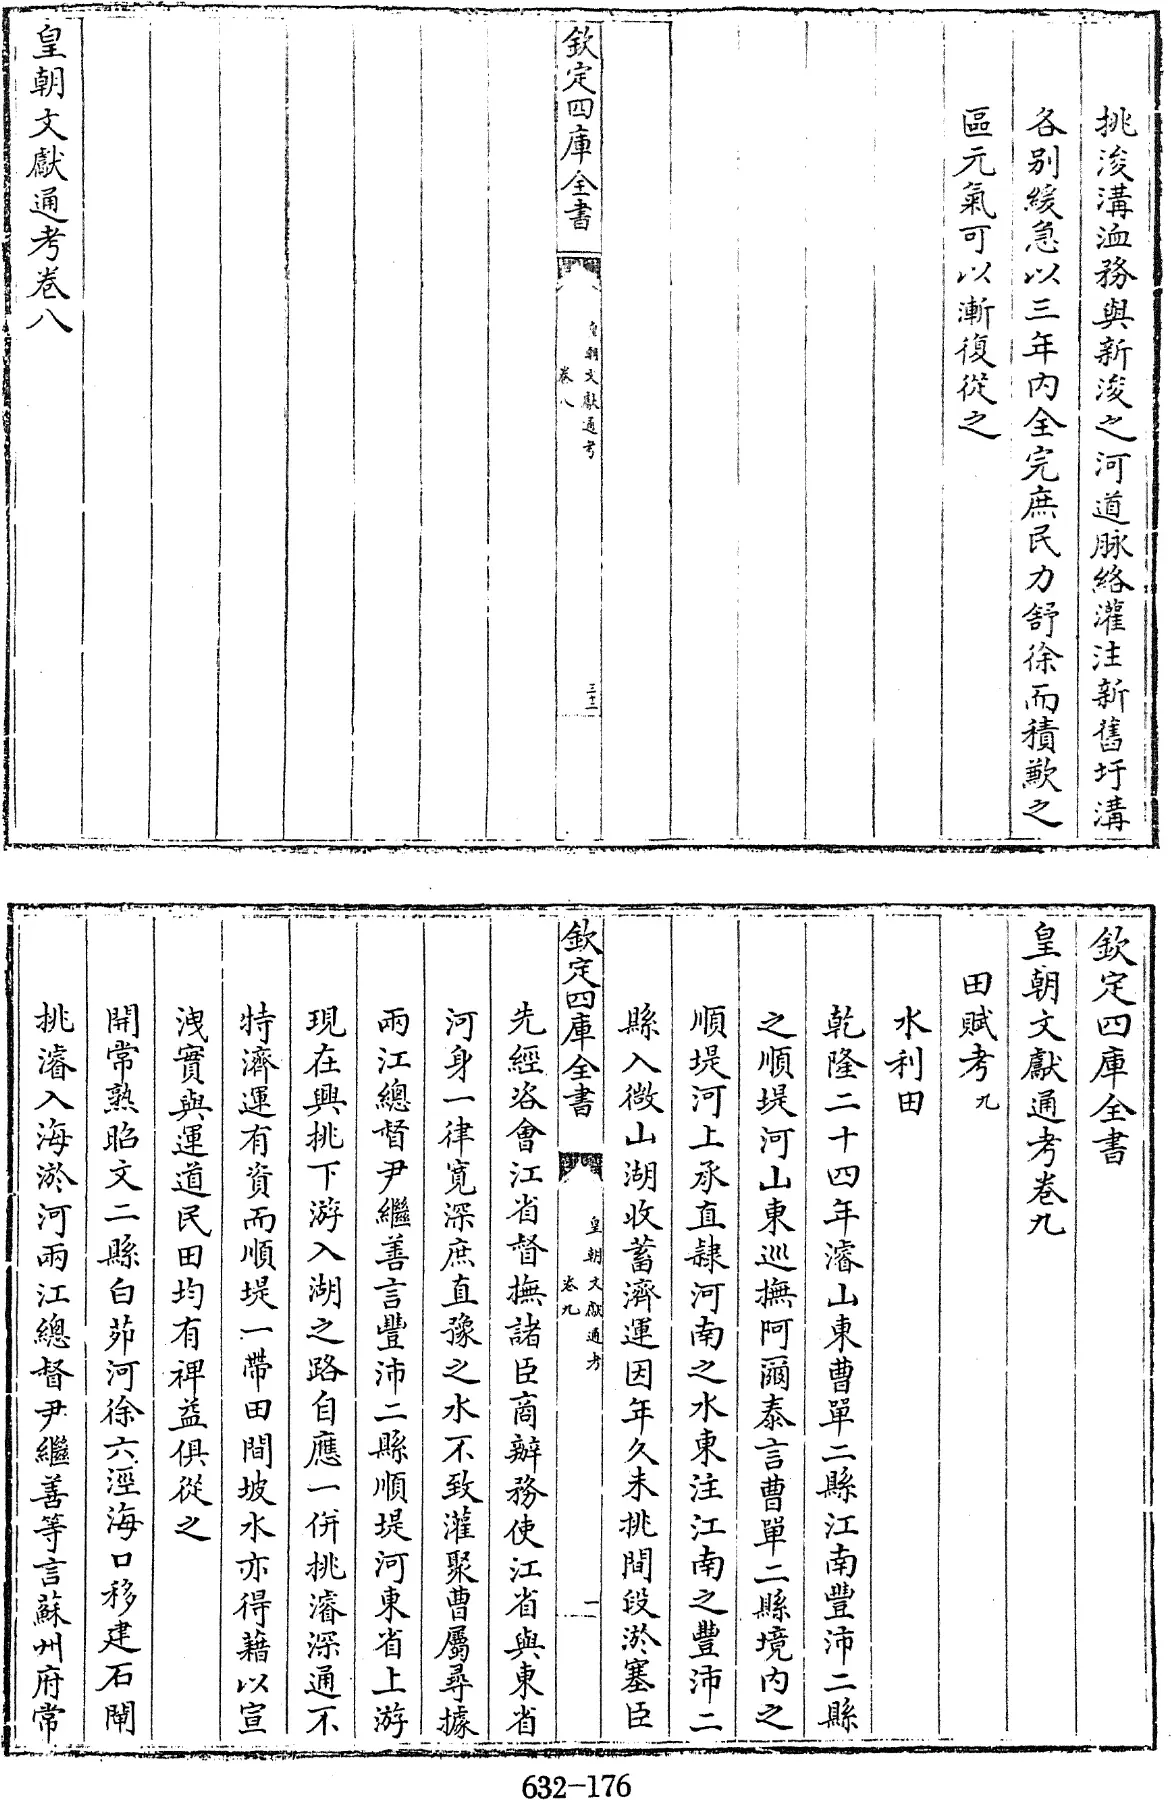 挑浚溝洫務與新浚之河道脉絡灌注新舊圩溝
各别緩急以三年内全完庶民力舒徐而積歉之
區元氣可以漸復從之
欽定四庫全書
皇朝文獻通考
卷八
三十二
皇朝文獻通考卷八
欽定四庫全書
皇朝文獻通考卷九
田賦考九
水利田
乾隆二十四年濬山東曹單二縣江南豐沛二縣
之順堤河山東巡撫阿爾泰言曹單二縣境内之
順堤河上承直隸河南之水東注江南之豐沛二
縣入微山湖收蓄濟運因年久未挑間段淤塞臣
欽定四庫全書
皇朝文獻通考
卷九
一
先經咨會江省督撫諸臣商辦務使江省與東省
河身一律寬深庶直豫之水不致灌聚曹屬尋據
兩江總督尹繼善言豐沛二縣順堤河東省上游
現在興挑下游入湖之路自應一併挑濬深通不
特濟運有資而順堤一帶田間坡水亦得藉以宣
洩實與運道民田均有裨益俱從之
開常熟昭文二縣白茆河徐六涇海口移建石閘
挑濬入海淤河兩江總督尹繼善等言蘇州府常
632-176